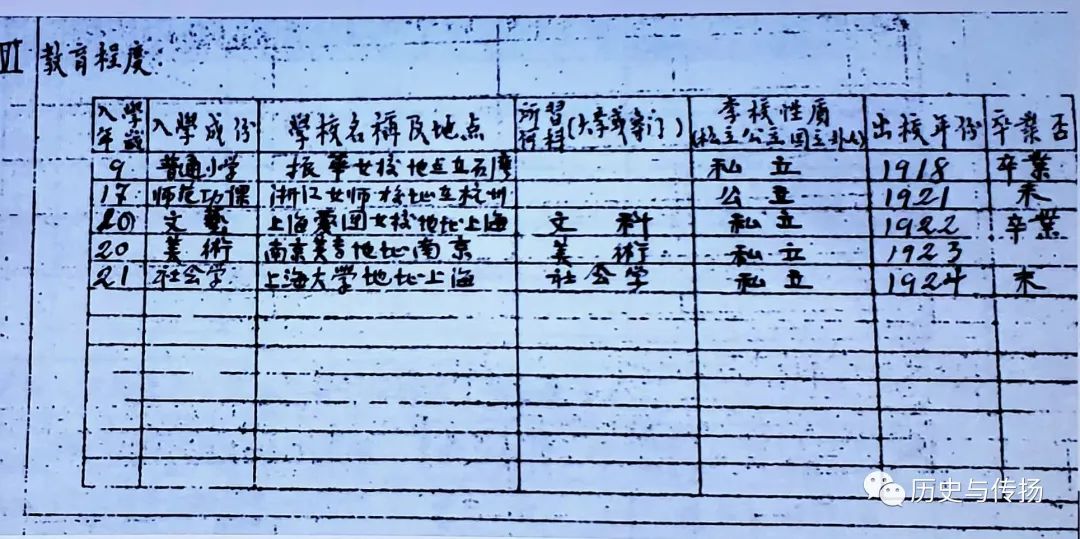 VI 教育程度
入學年歲 入學成份 學校名稱及地点 所習何科(大學或專门) 学校性质(私立公立国立外人) 出校年份 卒業否
9 普通小学 振華女校地点在石灣 私立 1918 卒業
17 师范功课 浙江女师校地在杭州 公立 1921 未
20 文藝 上海愛国女校地址上海 文科 私立 1922 卒業
20 美術 南京美专地址南京 美術 私立 1923
21 社会学 上海大学地址上海 社会学 私立 1924 未
历史与传扬